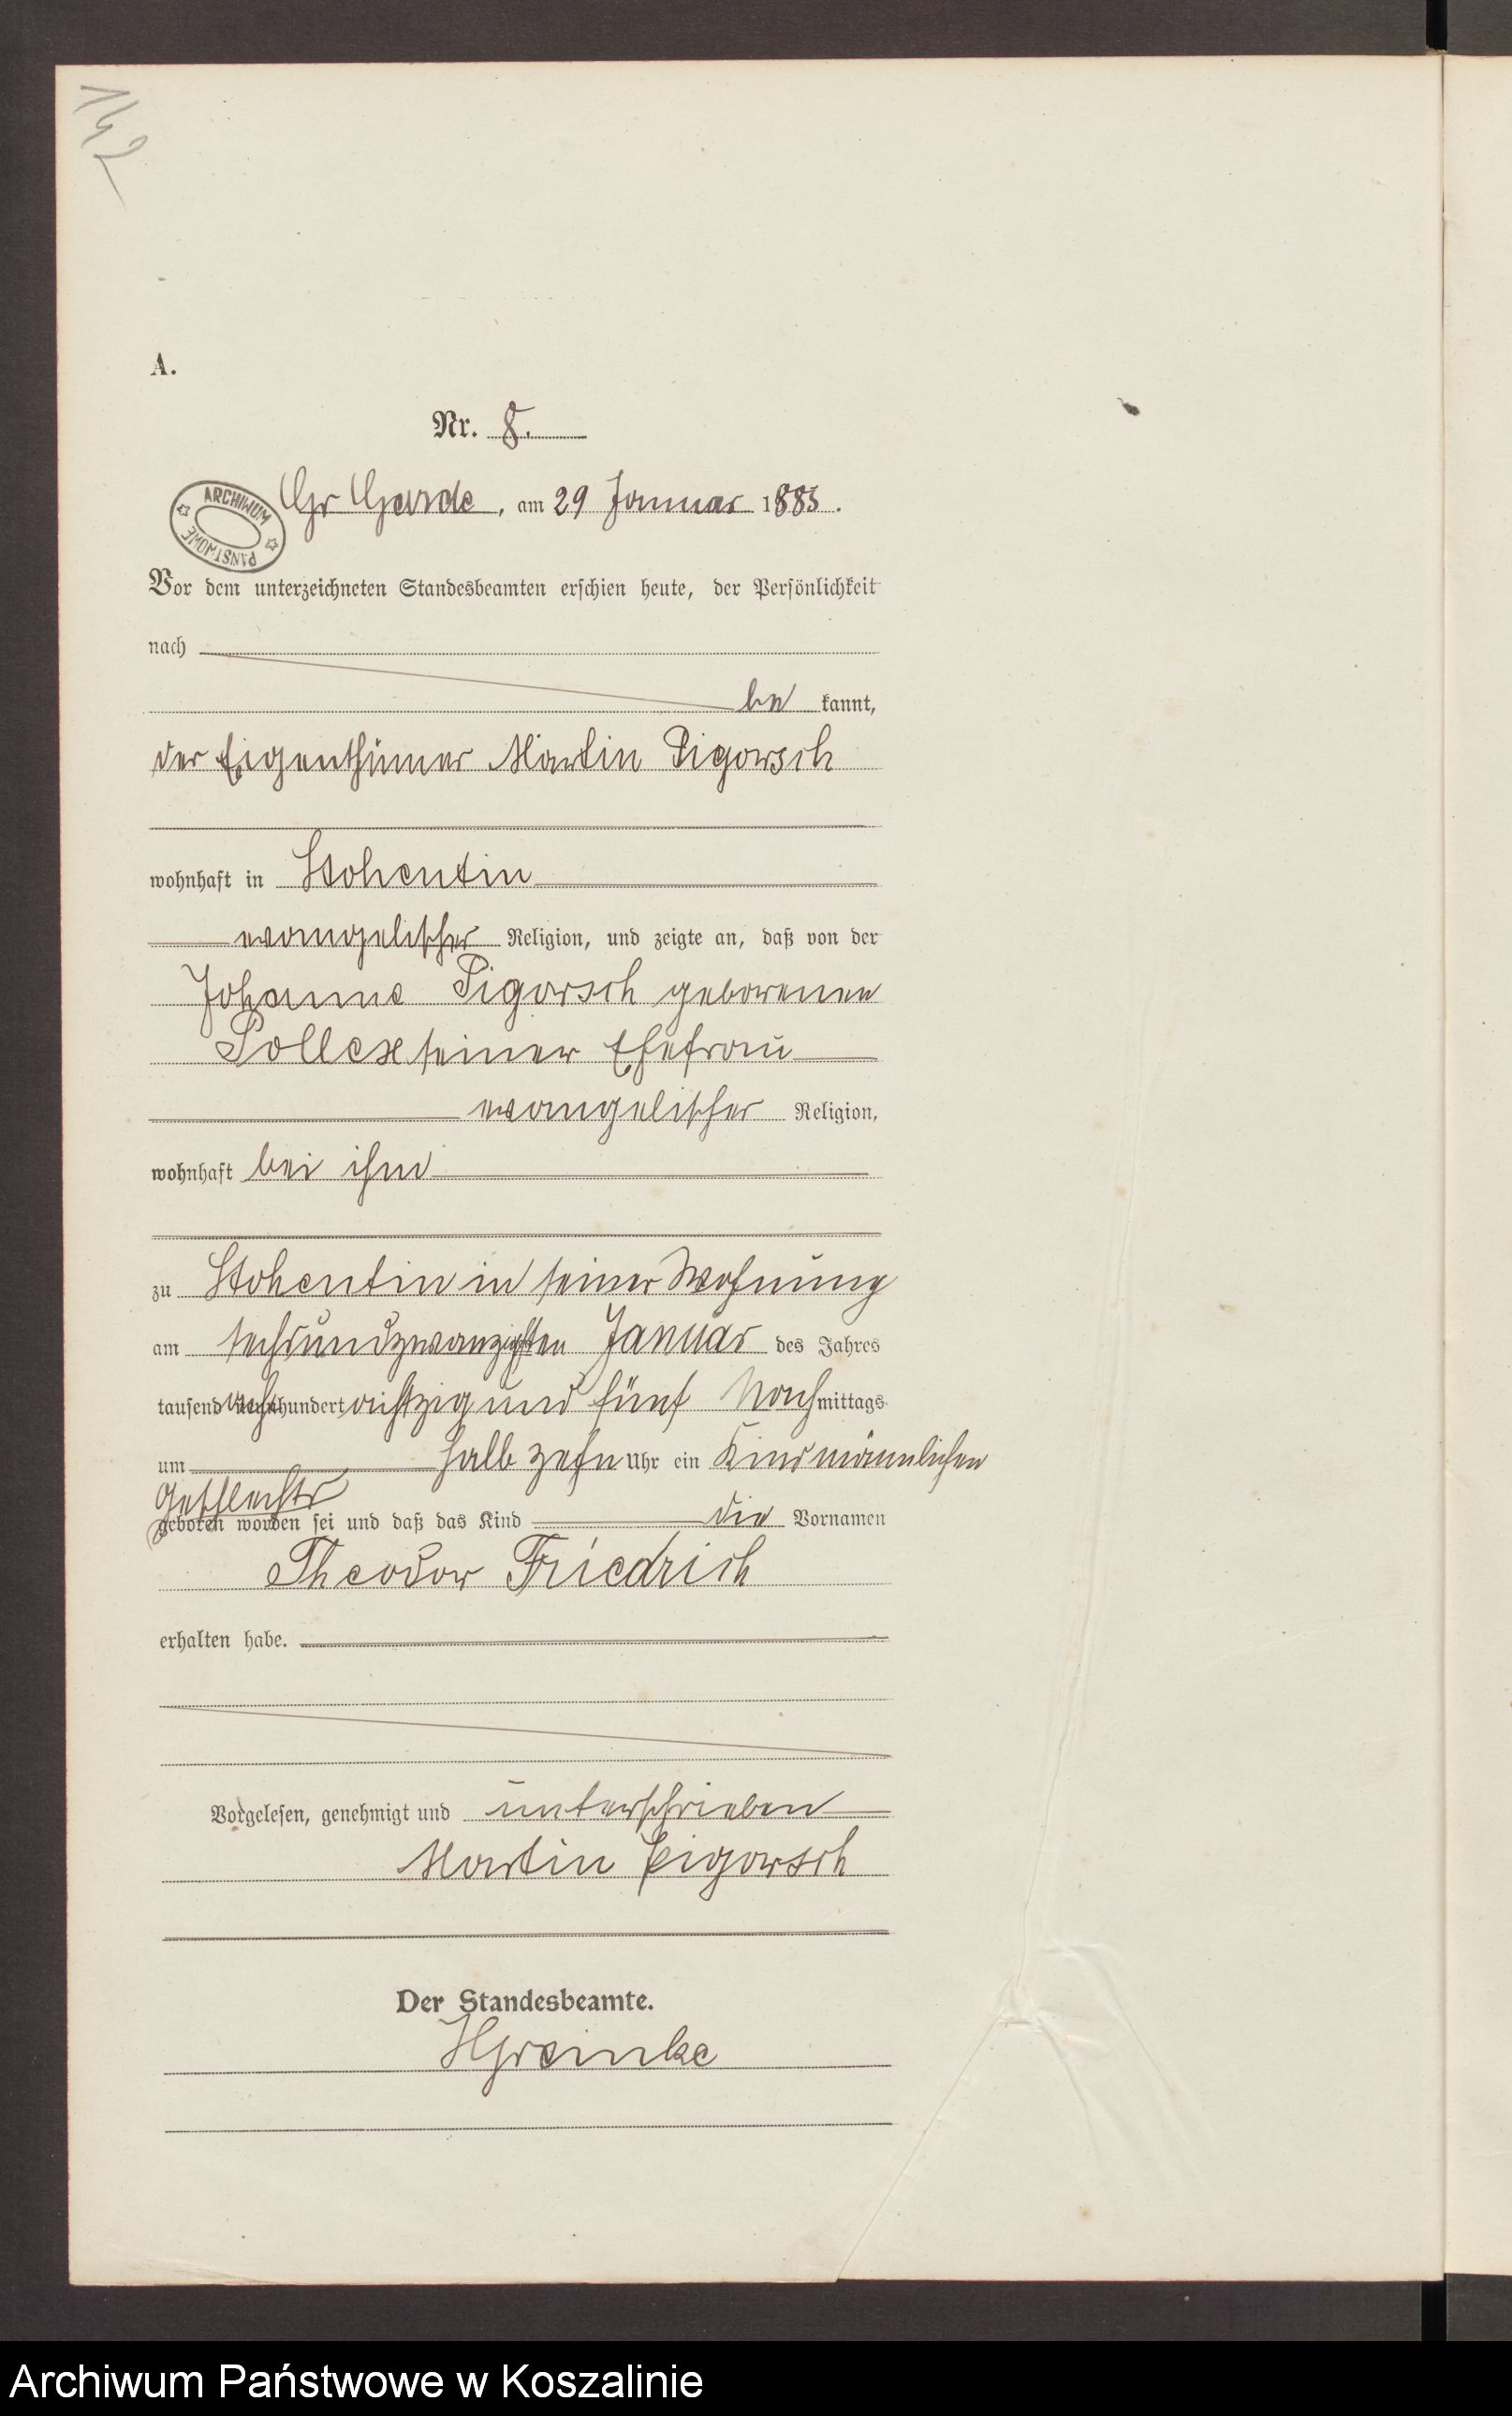 142
A.
Nr. 8.
ARCHIWUM PAŃSTWOWE
Gr Garde, am 29 Januar 1885.
Vor dem unterzeichneten Standesbeamten erschien heute, der Persönlichkeit
nach
be kannt,
der Eigenthümer Martin Pigorsch
wohnhaft in Stohentin
evangelischer Religion, und zeigte an, daß von der
Johanne Pigorsch geborenen
Pollex seiner Ehefrau
evangelischer Religion,
wohnhaft bei ihm
zu Stohentin in seiner Wohnung
am sechsundzwanzigsten Januar des Jahres
tausend acht hundert achtzig und fünf Nachmittags
um halb zehn Uhr ein Kind männlichen
Geschlechts
geboren worden sei und daß das Kind die Vornamen
Theodor Friedrich
erhalten habe.
Vorgelesen, genehmigt und unterschrieben
Martin Pigorsch
Der Standesbeamte.
HGreinke
Archiwum Państwowe w Koszalinie